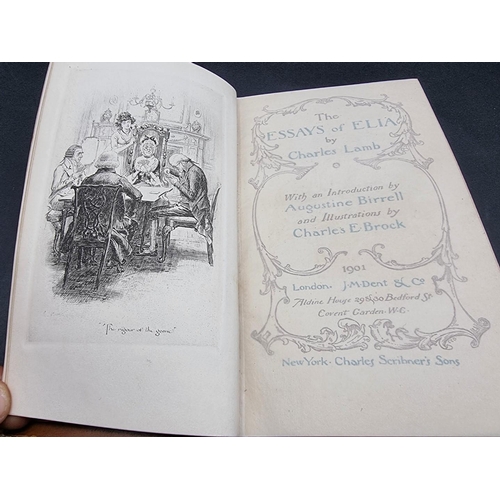 "The rigour of the game."
The
ESSAYS of ELIA
by
Charles Lamb
With an Introduction by
Augustine Birrell
and Illustrations by
Charles E. Brock
1901
London. J.M. Dent & Co
Aldine House 29 & 30 Bedford St
Covent Garden. W.C.
New York. Charles Scribner's Sons